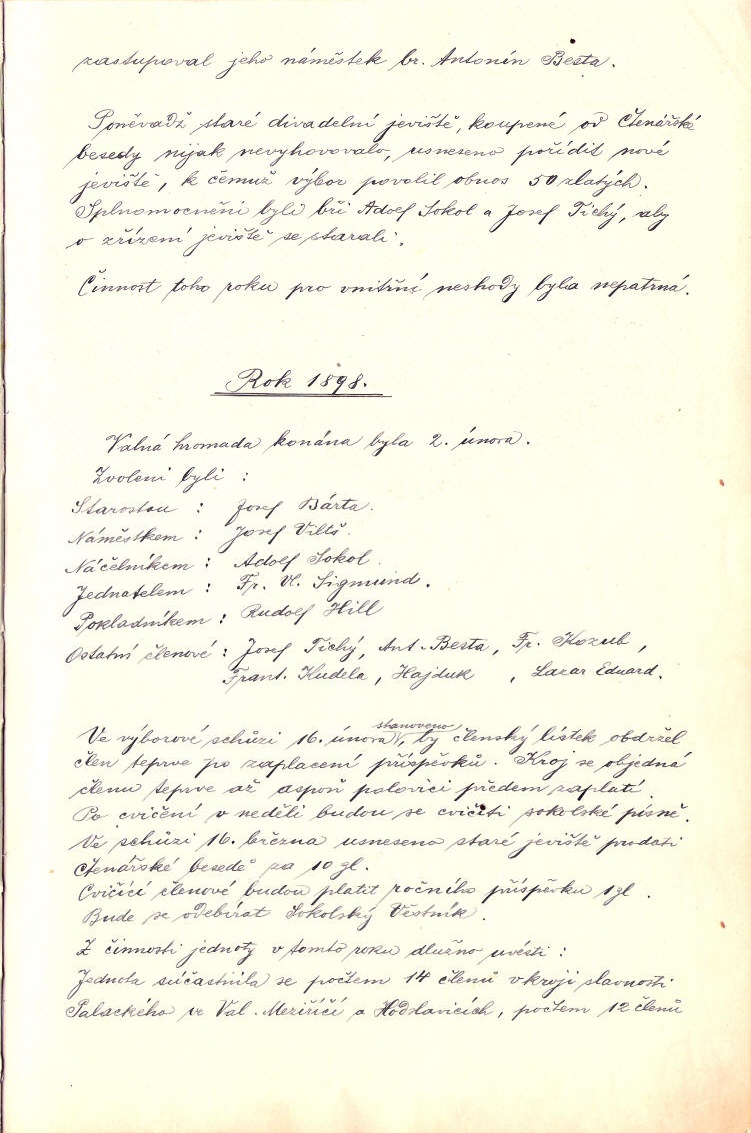 zastupoval jeho náměstek br. Antonín Besta.
Poněvadž staré divadelní jeviště, koupené od Čtenářské
besedy nijak nevyhovovalo, usneseno pořídit nové
jeviště, k čemuž výbor povolil obnos 50 zlatých.
Splnomocněni byli bří Adolf Sokol a Josef Tichý, aby
o zřízení jeviště se starali.
Činnost toho roku pro vnitřní neshody byla nepatrná.
Rok 1898.
Valná hromada konána byla 2. února.
Zvoleni byli :
Starostou : Josef Bárta.
Náměstkem : Josef Viltš.
Náčelníkem : Adolf Sokol.
Jednatelem : Fr. Vl. Sigmund.
Pokladníkem : Rudolf Hill
Ostatní členové : Josef Tichý, Ant. Besta, Fr. Kozub,
Frant. Kudela, Hajduk , Lazar Eduard.
stanoveno
Ve výborové schůzi 16. února, by členský lístek obdržel
člen teprve po zaplacení příspěvků. Kroj se objedná
členu teprve až aspoň polovici předem zaplatí.
Po cvičení v neděli budou se cvičiti sokolské písně.
Ve schůzi 16. března usneseno staré jeviště prodati
Čtenářské besedě za 10 zl.
Cvičící členové budou platit ročního příspěvku 1 zl.
Bude se odebírat Sokolský Věstník.
Z činnosti jednoty v tomto roku dlužno uvésti :
Jednota súčastnila se počtem 14 členů v kroji slavnosti
Palackého ve Val. Meziříčí a Hodslavicích, počtem 12 členů